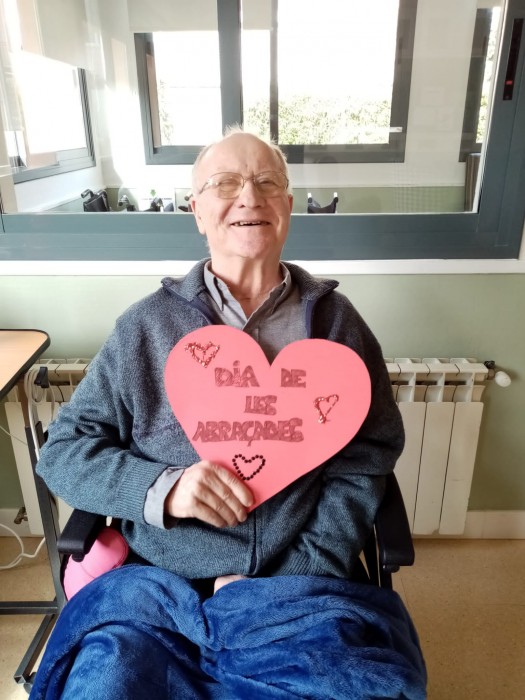 DIA DE
LES
ABRAÇADES